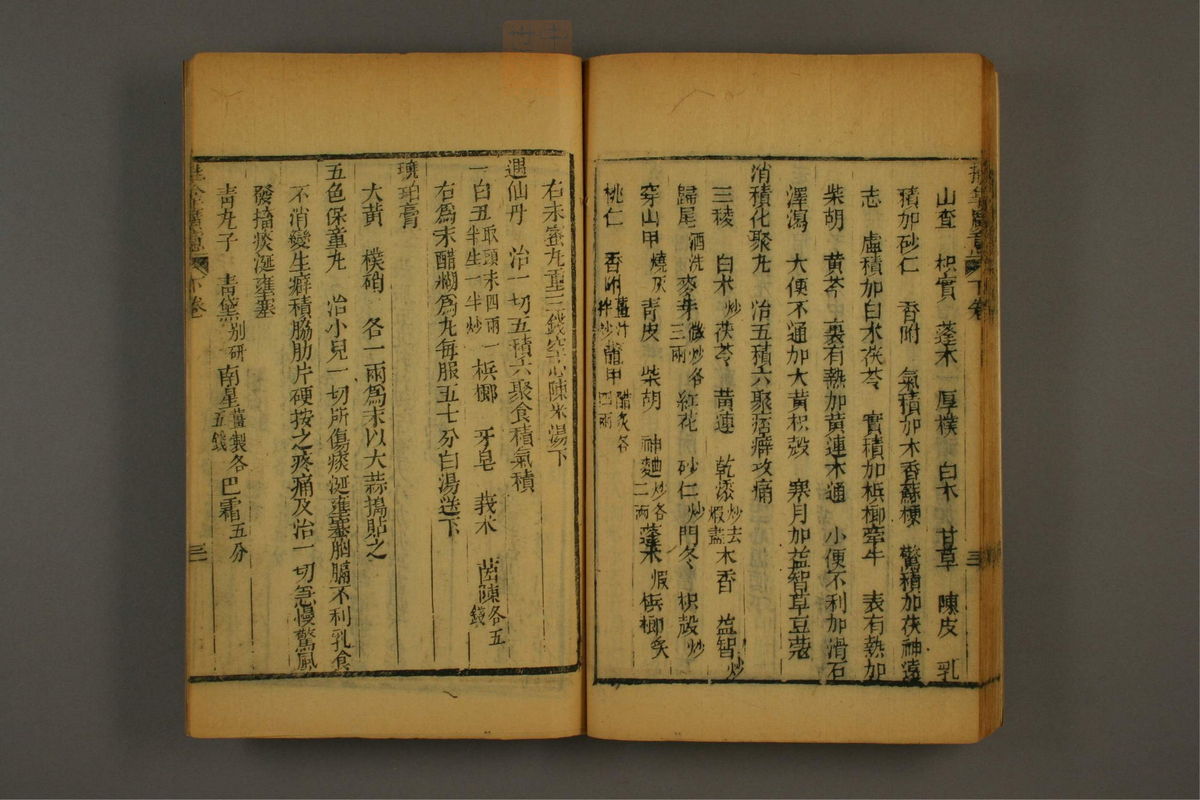 山查　枳實　蓬术　厚樸　白术　甘草　陳皮　乳
積加砂仁　香附　氣積加木香蘇梗　驚積加茯神遠
志　虛積加白术茯苓　實積加梹榔牽牛　表有熱加
柴胡　黄芩　裏有熱加黄連木通　小便不利加滑石
澤瀉　大便不通加大黄枳殻　寒月加益智草豆蔻
消積化聚丸　治五積六聚痞癖攻痛
三稜　白术炒茯苓　黄連　乾漆炒去烟盡木香　益智炒
歸尾酒洗麥芽微炒各三兩紅花　砂仁炒門冬　枳殻炒
穿山甲燒灰青皮　柴胡　神麯炒各二兩蓬术煨梹榔
桃仁　香附薑汁拌炒龞甲醋炙各四兩
右末蜜丸重三錢空心陳米湯下
遇仙丹　治一切五積六聚食積氣積
白丑取頭末四兩一半生一半炒梹榔　牙皂　莪术　茵陳各五錢
右爲末醋糊爲丸每服五七分白湯送下
琥珀膏
大黄　樸硝　各一兩爲末以大蒜搗貼之
五色保童丸　治小兒一切所傷痰涎壅塞胸膈不利乳食
不消變生癖積脇肋片硬按之疼痛及治一切急慢驚風
發搐痰涎壅塞
靑丸子　靑黛别研南星薑製各五錢巴霜五分
下卷
三
下卷
三